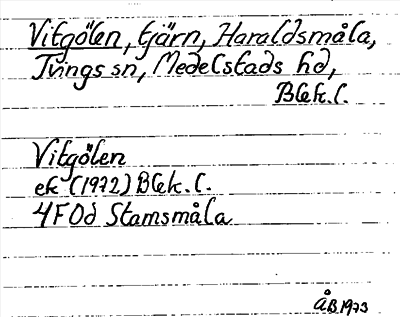 Vitgölen, tjärn, Haraldsmåla,
Tvings sn, Medelstads hd,
Blek.l.
Vitgölen
ek (1972) Blek.l.
4F0d Stamsmåla
ÅB 1973